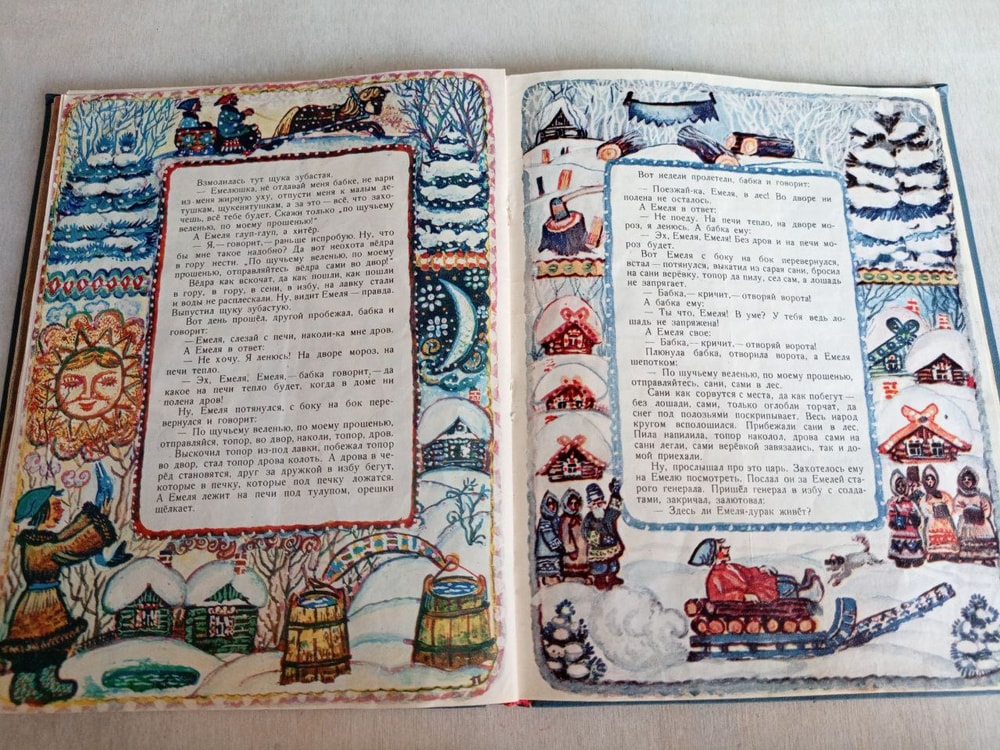 Взмолилась тут щука зубастая.
— Емелюшка, не отдавай меня бабке, не вари
из меня жирную уху, отпусти меня к малым де-
тушкам, щукенятушкам, а за это — всё, что захо-
чешь, всё тебе будет. Скажи только „по щучьему
веленью, по моему прошенью!"
А Емеля глуп-глуп, а хитёр.
— Я,— говорит,— раньше испробую. Ну, что
бы мне такое надобно? Да вот неохота вёдра
в гору нести. „По щучьему веленью, по моему
прошенью, отправляйтесь вёдра сами во двор!"
Вёдра как вскочат, да как пошли, как пошли
в гору, в гору, в сени, в избу, на лавку стали
и воды не расплескали. Ну, видит Емеля — правда.
Выпустил щуку зубастую.
Вот день прошёл, другой пробежал, бабка и
говорит:
— Емеля, слезай с печи, наколи-ка мне дров.
А Емеля в ответ:
— Не хочу. Я ленюсь! На дворе мороз, на
печи тепло.
— Эх, Емеля, Емеля,— бабка говорит,— да
какое на печи тепло будет, когда в доме ни
полена дров!
Ну, Емеля потянулся, с боку на бок пере-
вернулся и говорит:
— По щучьему веленью, по моему прошенью,
отправляйся, топор, во двор, наколи, топор, дров.
Выскочил топор из-под лавки, побежал топор
во двор, стал топор дрова колоть. А дрова в че-
рёд становятся, друг за дружкой в избу бегут,
которые в печку, которые под печку ложатся.
А Емеля лежит на печи под тулупом, орешки
щёлкает.
Вот недели пролетели, бабка и говорит:
— Поезжай-ка, Емеля, в лес! Во дворе ни
полена не осталось.
А Емеля в ответ:
— Не поеду. На печи тепло, на дворе мо-
роз, я ленюсь. А бабка ему:
— Эх, Емеля, Емеля! Без дров и на печи мо-
роз будет.
Вот Емеля с боку на бок перевернулся,
встал — потянулся, выкатил из сарая сани, бросил
на сани верёвку, топор да пилу, сел сам, а лошадь
не запрягает.
— Бабка,— кричит,— отворяй ворота!
А бабка ему:
— Ты что, Емеля! В уме? У тебя ведь ло-
шадь не запряжена!
А Емеля свое:
— Бабка,— кричит,— отворяй ворота!
Плюнула бабка, отворила ворота, а Емеля
шепотком:
— По щучьему веленью, по моему прошенью,
отправляйтесь, сани, сами в лес.
Сани как сорвутся с места, да как побегут —
без лошади, сами, только оглобли торчат, да
снег под полозьями поскрипывает. Весь народ
кругом всполошился. Прибежали сани в лес.
Пила напилила, топор наколол, дрова сами на
сани легли, сами верёвкой завязались, так и до-
мой приехали.
Ну, прослышал про это царь. Захотелось ему
на Емелю посмотреть. Послал он за Емелей ста-
рого генерала. Пришёл генерал в избу с солда-
тами, закричал, залютовал:
— Здесь ли Емеля-дурак живёт?